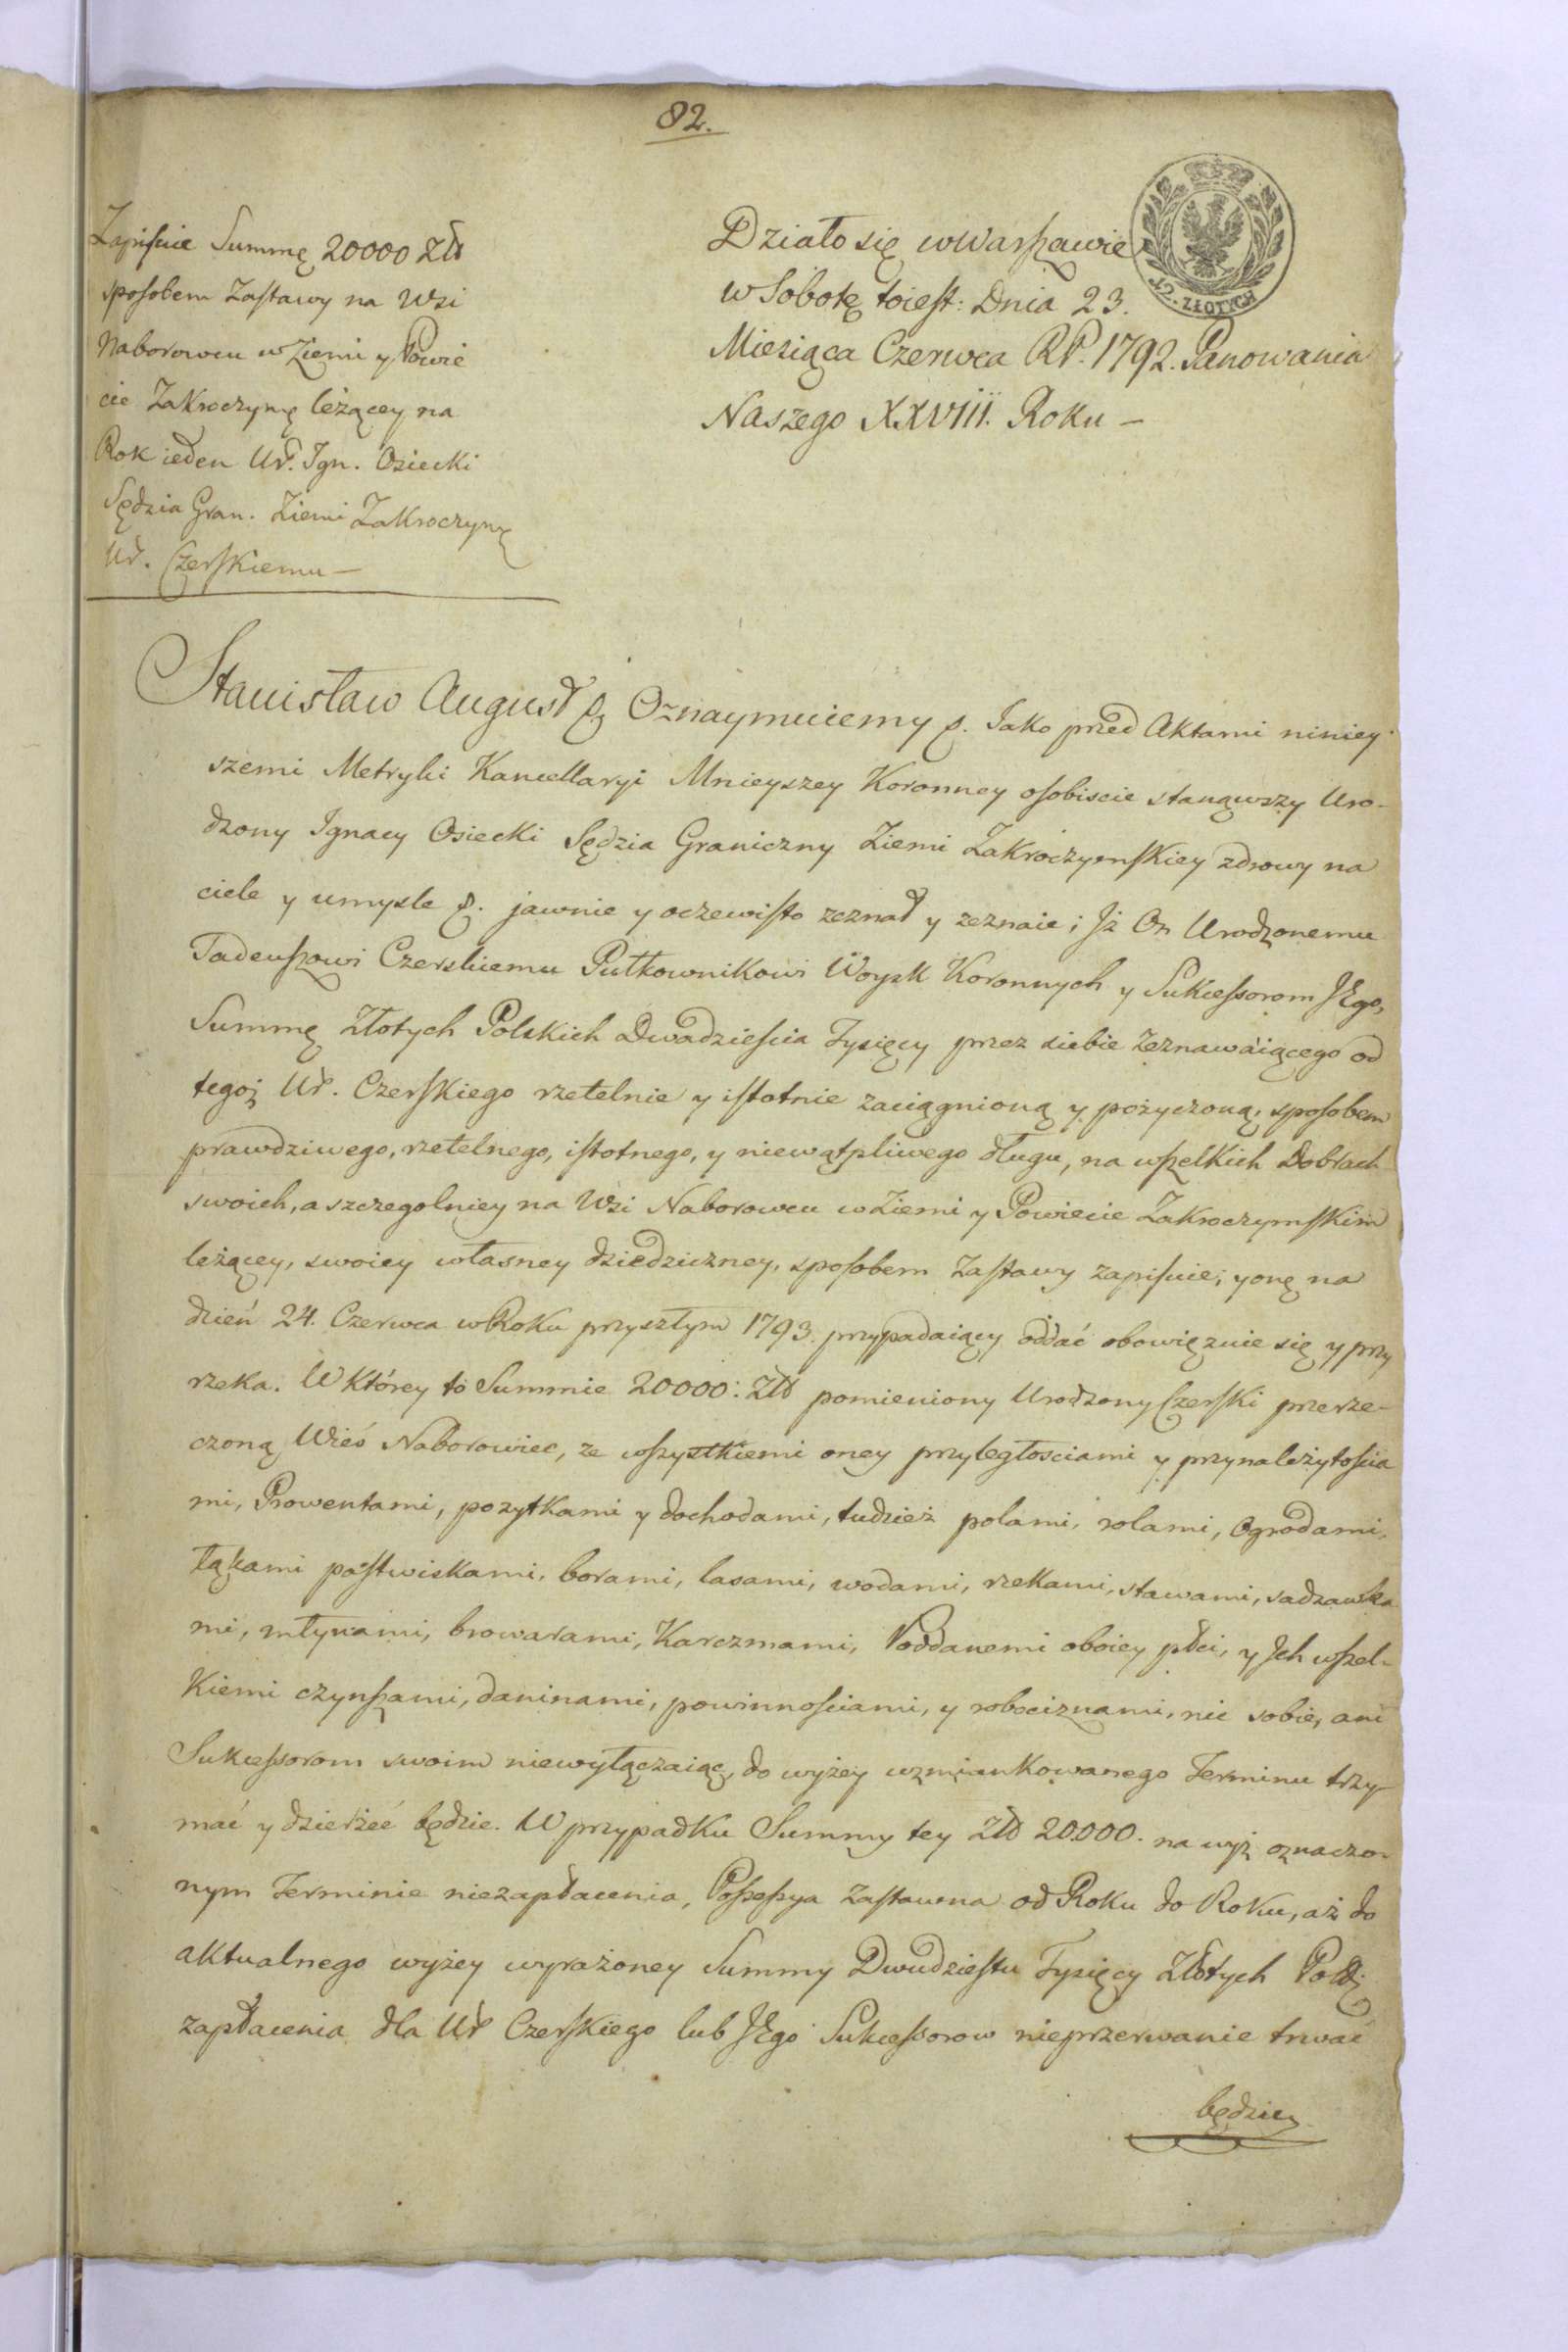 82.
Zapisuie Summę 20000 Zł
sposobem Zastawy na Wsi
Naborowcu w Ziemi y Powie
cie Zakroczymę leżącey na
Rok ieden Ur. Ign. Osiecki
Sędzia Gran. Ziemi Zakroczymę
Ur. Czerskiemu —
Działo się w Warszawie
w Sobotę toiest: Dnia 23.
Miesiąca Czerwca RP. 1792. Panowania
Naszego XXVIII. Roku —
12. ZŁOTYCH
Stanisław August & Oznaymuiemy &. Jako przed Aktami niniey
szemi Metryki Kancellaryi Mnieyszey Koronney osobiscie stanąwszy Uro-
dzony Ignacy Osiecki Sędzia Graniczny Ziemi Zakroczymskiey zdrowy na
ciele y umysle &. jawnie y oczewisto zeznał y zeznaie; Jż On Urodzonemu
Tadeuszowi Czerskiemu Pułkownikowi Woysk Koronnych y Sukcessorom JEgo,
Summę Złotych Polskich Dwadziescia Tysięcy przez siebie Zeznawaiącego od
tegoż Ur. Czerskiego rzetelnie y istotnie zaciągnioną y pożyczoną, sposobem
prawdziwego, rzetelnego, istotnego, y niewątpliwego długu, na wszelkich Dobrach
swoich, a szczegolniey na Wsi Naborowcu w Ziemi y Powiecie Zakroczymskim
leżącey, swoiey własney dziedziczney, sposobem Zastawy zapisuie; y onę na
dzień 24. Czerwca w Roku przyszłym 1793. przypadaiący oddać obowięzuie się y przy
rzeka. W Którey to Summie 20000: Zł pomieniony Urodzony Czerski przerze-
czoną Wieś Naborowiec, ze wszystkiemi oney przyległosciami y przynależytoscia
mi, Prowentami, pozytkami y dochodami, tudzież polami, rolami, Ogrodami,
łąkami pastwiskami, borami, lasami, wodami, rzekami, stawami, sadzawka
mi, młynami, browarami, Karczmami, Poddanemi oboiey płci, y Jch wszel-
Kiemi czynszami, daninami, powinnosciami, y robociznami, nic sobie, ani
Sukcessorom swoim niewyłączaiąc, do wyżey wzmiankowanego Terminu trzy-
mać y dzierżeć będzie. W przypadku Summy tey Zł 20.000. na wyż oznaczo-
nym Terminie niezapłacenia, Possessya Zastawna od Roku do Roku, aż do
aktualnego wyżey wyrażoney Summy Dwudziestu Tysięcy Złotych Pol:
zapłacenia dla Ur Czerskiego lub JEgo Sukcessorow nieprzerwanie trwać
będzie,